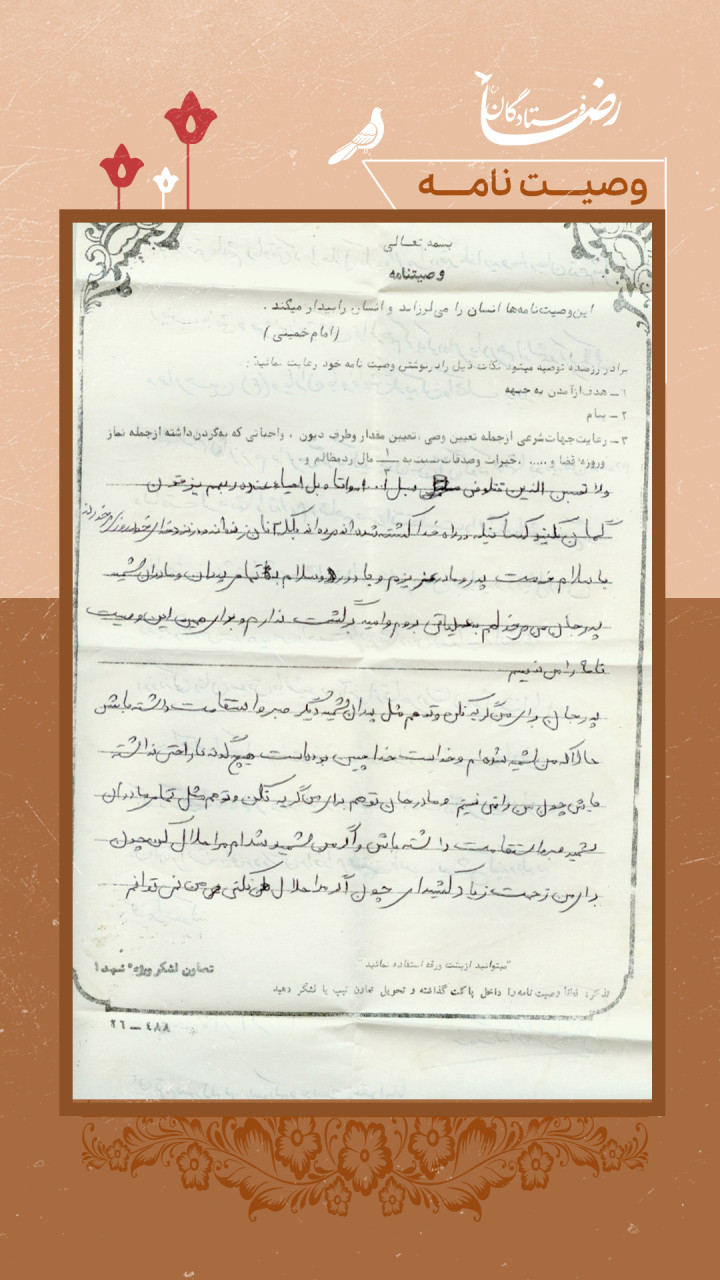 فرستادگان رضا
وصیت نامه
بسمه تعالی
وصیتنامه
این وصیت‌نامه‌ها انسان را می‌لرزاند و انسان را بیدار میکند .
(امام خمینی)
برادر رزمنده توصیه میشود نکات ذیل را در نوشتن وصیت نامه خود رعایت نمائید :
۱ – هدف از آمدن به جبهه
۲ – پیام
۳ – رعایت جهات شرعی از جمله تعیین وصی ، تعیین مقدار و طرف دیون ، واجباتی که به گردن داشته از جمله نماز
و روزه قضا و ..... ، خیرات و صدقات نسبت به ۱/۳ مال رد مظالم و .
ولا تحسبن الذین قتلو فی سبیل ا... امواتا بل احیاء عند ربهم یرزقون
گمان نکنید کسانیکه در راه خدا کشته شده اند مرده اند بلکه آنان زنده اند و نزد خدای خود روزی میخورند
با سلام خدمت پدر و مادر عزیزم و با درود و سلام به تمامی پدران و مادران شهید
پدر جان من میخواهم به عملیاتی بروم و امید برگشت ندارم و برای همین این وصیت
نامه را می نویسم
پدر جان برای من گریه نکن و تو هم مثل پدران شهید دیگر صبر و استقامت داشته باش
حالا که من شهید شده ام و خواست خدا چنین بوده است هیچ گونه ناراحتی نداشته
باش چول من راضی نیستم و مادر جان تو هم برای من گریه نکن و تو هم مثل تمامی مادران
شهید صبر و استقامت داشته باش و اگر من شهید شدم مرا حلال کن چول
برای من زحمت زیاد کشیدای چول اگر مرا حلال نکنی من نمی توانم
"میتوانید از پشت ورقه استفاده نمائید"
تعاون لشکر ویژه شهدا
تذکر: لطفاً وصیت نامه را داخل پاکت گذاشته و تحویل تعاون تیپ یا لشگر دهید
۲۶ – ۴۸۸